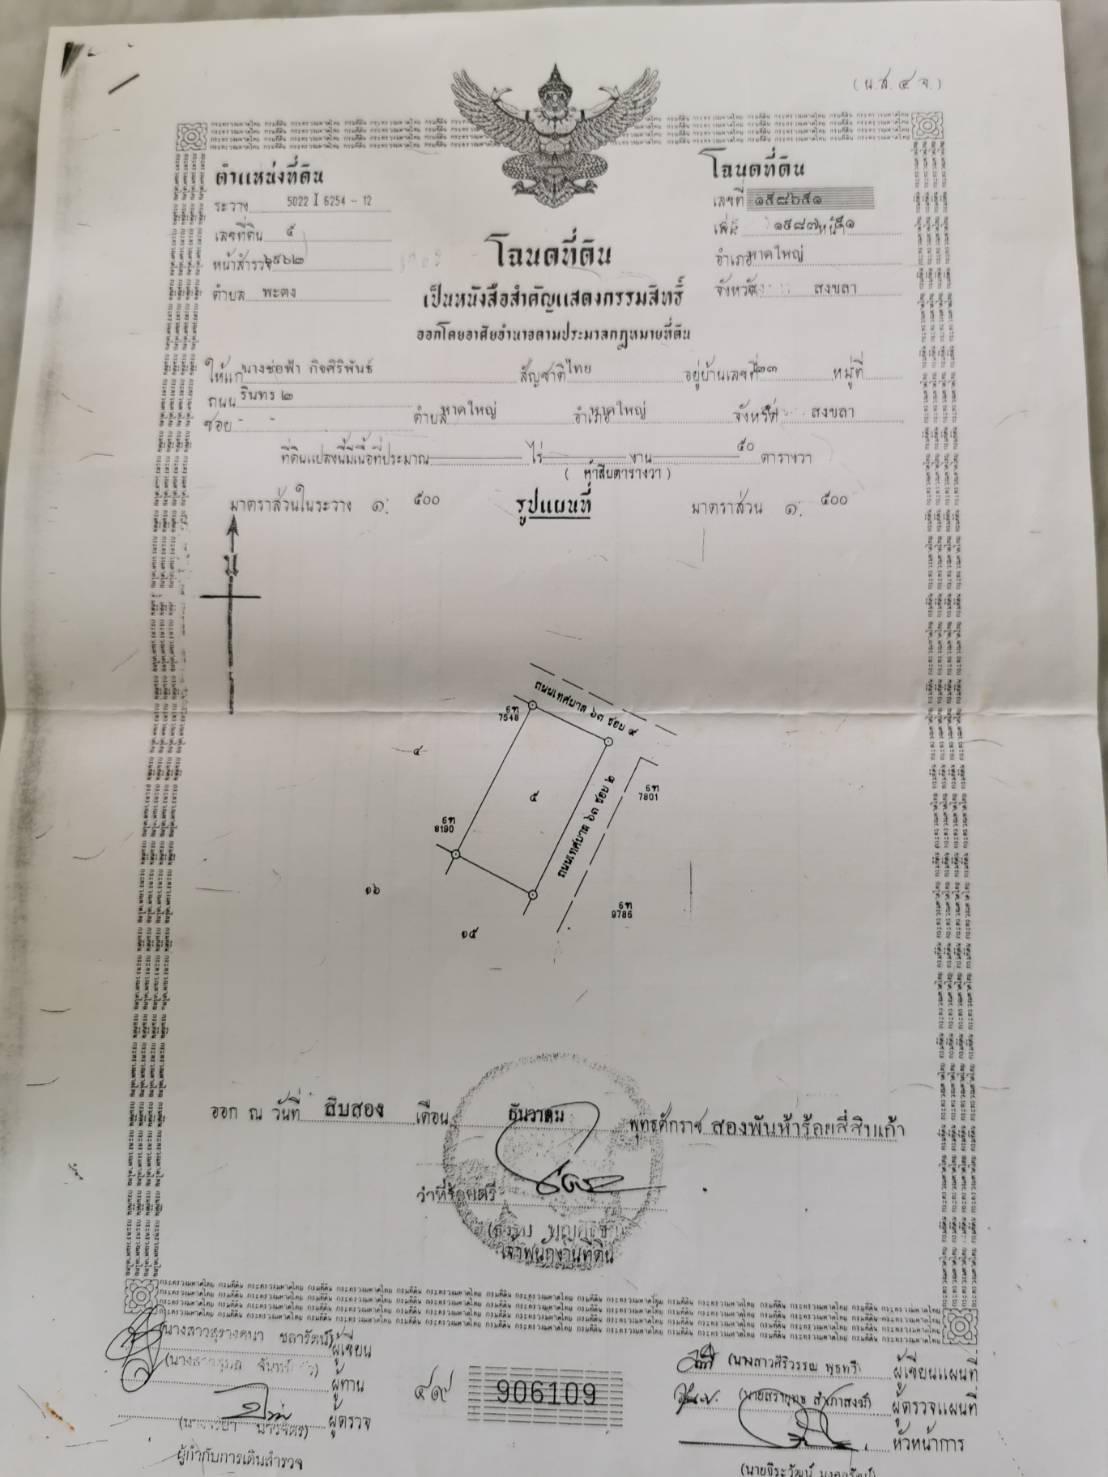 (น.ส. ๔ จ.)
ตำแหน่งที่ดิน
ระวาง 5022 I 6254 - 12
เลขที่ดิน ๕
หน้าสำรวจ ๖๕๖๒
ตำบล พะตง
โฉนดที่ดิน
เลขที่ ๑๕๘๖๕๑
เล่ม ๑๕๘๗ หน้า ๕๑
อำเภอ หาดใหญ่
จังหวัด สงขลา
โฉนดที่ดิน
เป็นหนังสือสำคัญแสดงกรรมสิทธิ์
ออกโดยอาศัยอำนาจตามประมวลกฎหมายที่ดิน
ให้แก่ นางช่อฟ้า กิจศิริพันธ์ สัญชาติ ไทย อยู่บ้านเลขที่ ๒๓ หมู่ที่
ถนน รินทร ๒
ซอย - ตำบล หาดใหญ่ อำเภอ หาดใหญ่ จังหวัด สงขลา
ที่ดินแปลงนี้มีเนื้อที่ประมาณ ไร่ งาน ๕๐ ตารางวา
( ห้าสิบตารางวา )
มาตราส่วนในระวาง ๑: ๕๐๐ รูปแผนที่ มาตราส่วน ๑: ๕๐๐
น
ถนนเทศบาล ๖๓ ซอย ๙
6ท
7548
๔
ถนนเทศบาล ๖๓ ซอย ๒
6ท
7801
๕
6ท
8190
๑๖
6ท
9786
๑๕
ออก ณ วันที่ สิบสอง เดือน ธันวาคม พุทธศักราช สองพันห้าร้อยสี่สิบเก้า
ว่าที่ร้อยตรี
เจ้าพนักงานที่ดิน
ผู้เขียน
ผู้ทาน
ผู้ตรวจ
ผู้กำกับการเดินสำรวจ
๔๙ 906109
(นางสาวศิริวรรณ พุทธรี) ผู้เขียนแผนที่
ผู้ตรวจแผนที่
หัวหน้าการ